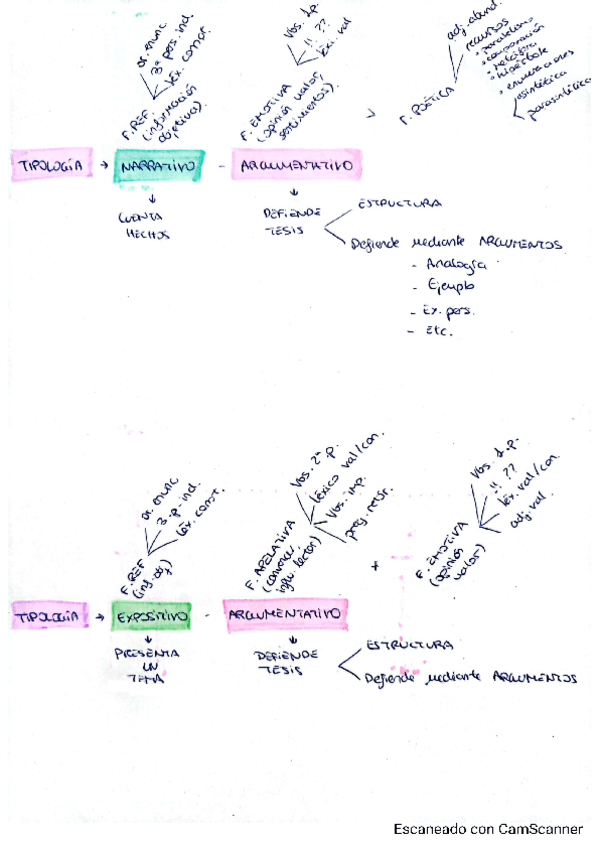 or. enunc.
3ª pers. ind.
léx. connot.
F. REF.
(información
objetiva).
Vbs. 1p.
!! ??
léx. val
F. EMOTIVA
(opinión valor,
sentimientos).
>
F. POÉTICA
adj. abund.
recursos
• paralelismo
• comparación
• metáfora
• hipérbole
• enumeraciones
sintética
parasintética
TIPOLOGÍA → NARRATIVO - ARGUMENTATIVO
CUENTA
HECHOS
DEFIENDE
TESIS
ESTRUCTURA
Defiende mediante ARGUMENTOS
- Analogía
- Ejemplo
- Ex. pers.
- Etc.
or. enunc
3. p. ind.
léx. connot.
F. REF
(inf. obj)
Vbs. 2ª p.
léxico val/con.
Vbs. imp.
preg. retór.
F. APELATIVA
(convencer,
influ. lector)
+
Vbs. 1.p.
!! ??
léx. val/con.
adj. val.
F. EMOTIVA
(opinión
valor)
TIPOLOGÍA → EXPOSITIVO - ARGUMENTATIVO
PRESENTA
UN
TEMA
DEFIENDE
TESIS
ESTRUCTURA
Defiende mediante ARGUMENTOS
Escaneado con CamScanner